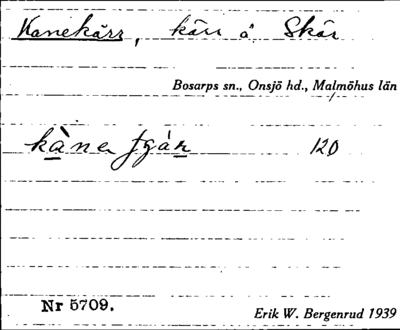 Kanekärr, kärr å Skår
Bosarps sn., Onsjö hd., Malmöhus län
120
Nr 5709.
Erik W. Bergenrud 1939